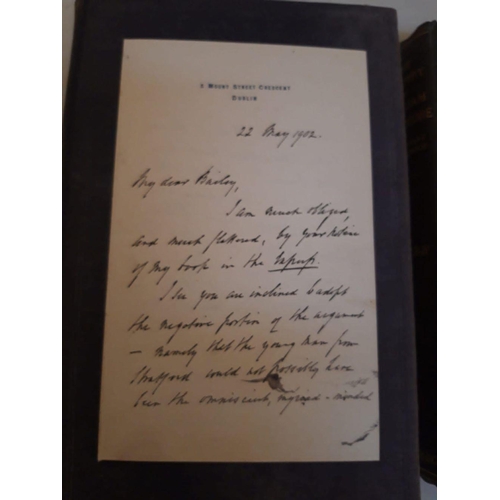 5 MOUNT STREET CRESCENT
DUBLIN
22 May 1902.
My dear Bailey,
I am much obliged,
and much flattered, by your notice
of my book in the Express.
I see you are inclined to adopt
the negative portion of the argument
— namely that the young man from
Stratford could not possibly have
been the omniscient, myriad-minded